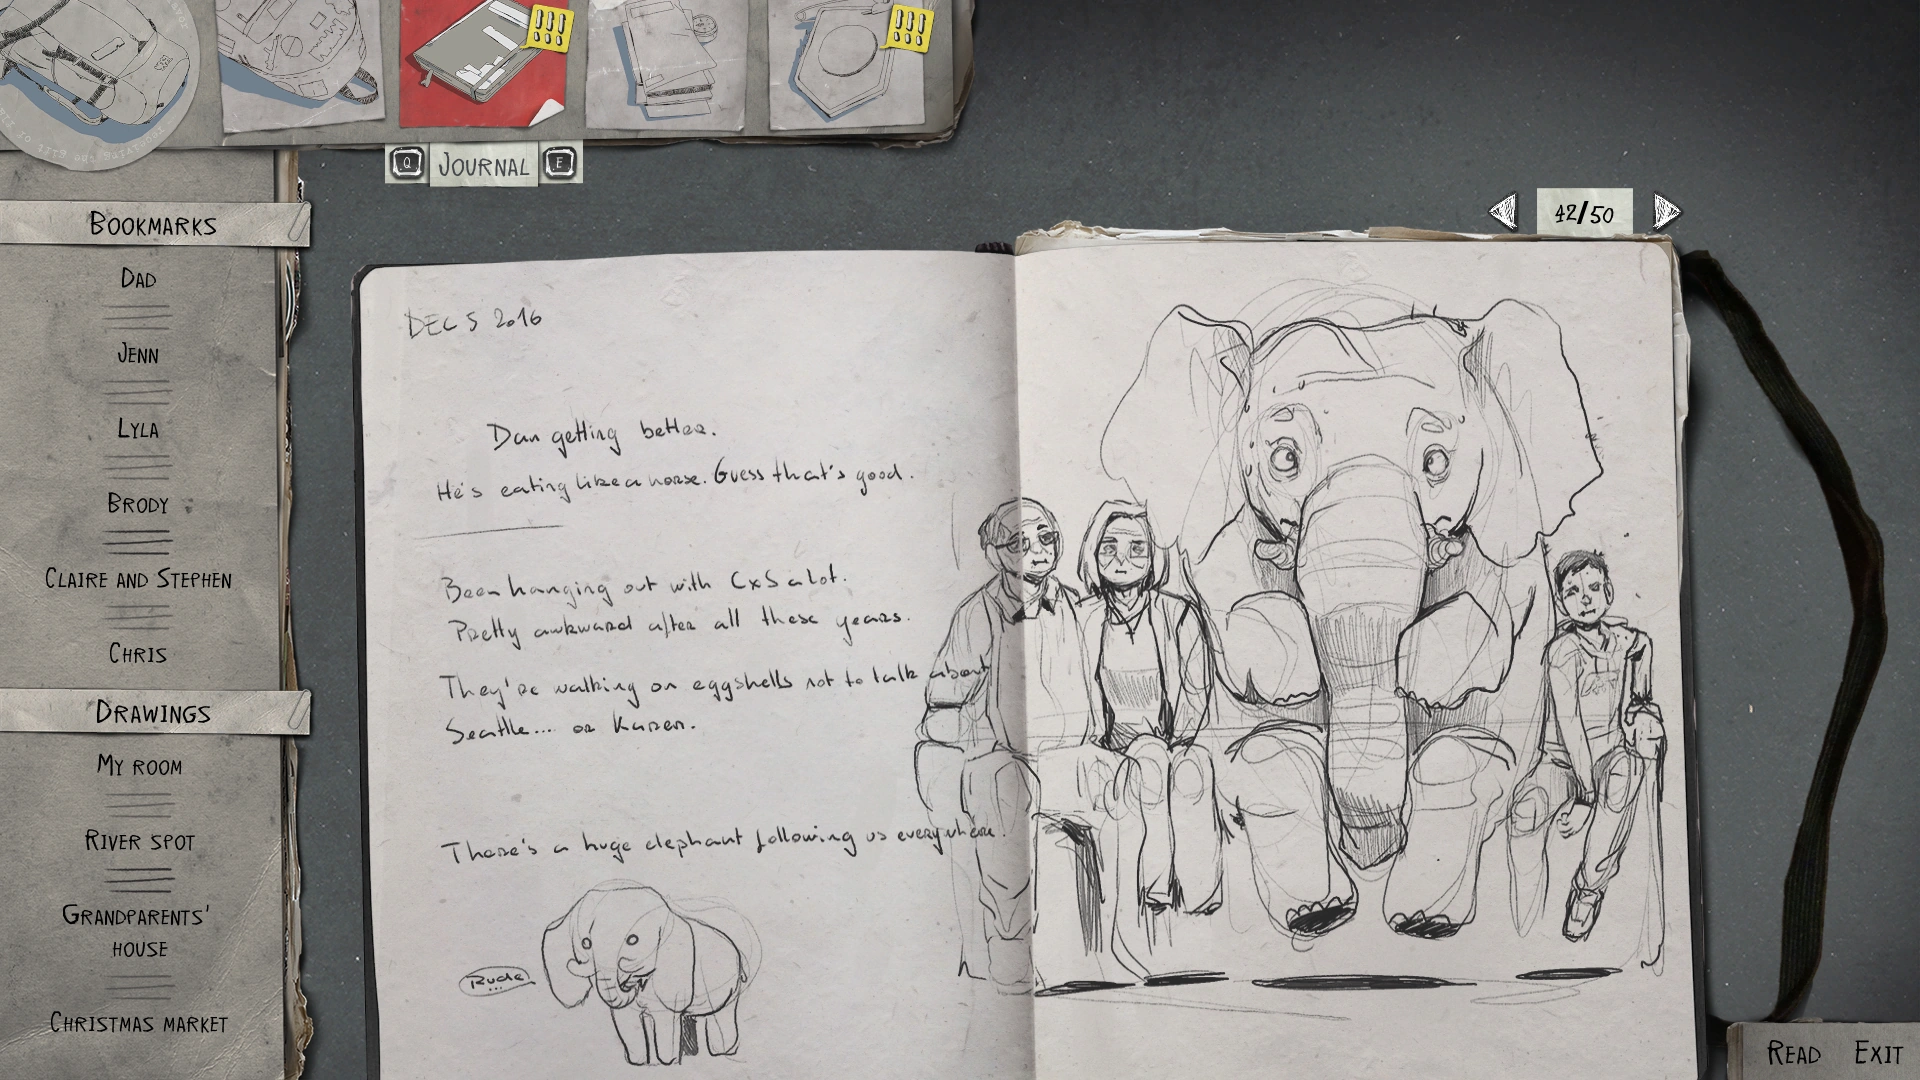 JOURNAL
Q
E
42/50
BOOKMARKS
DAD
JENN
LYLA
BRODY
CLAIRE AND STEPHEN
CHRIS
DRAWINGS
MY ROOM
RIVER SPOT
GRANDPARENTS'
HOUSE
CHRISTMAS MARKET
DEC 5 2016
Dan getting better.
He's eating like a horse. Guess that's good.
Been hanging out with CxS a lot.
Pretty awkward after all these years.
They're walking on eggshells not to talk about
Seattle... or Karen.
There's a huge elephant following us everywhere.
Rude
...
READ
EXIT